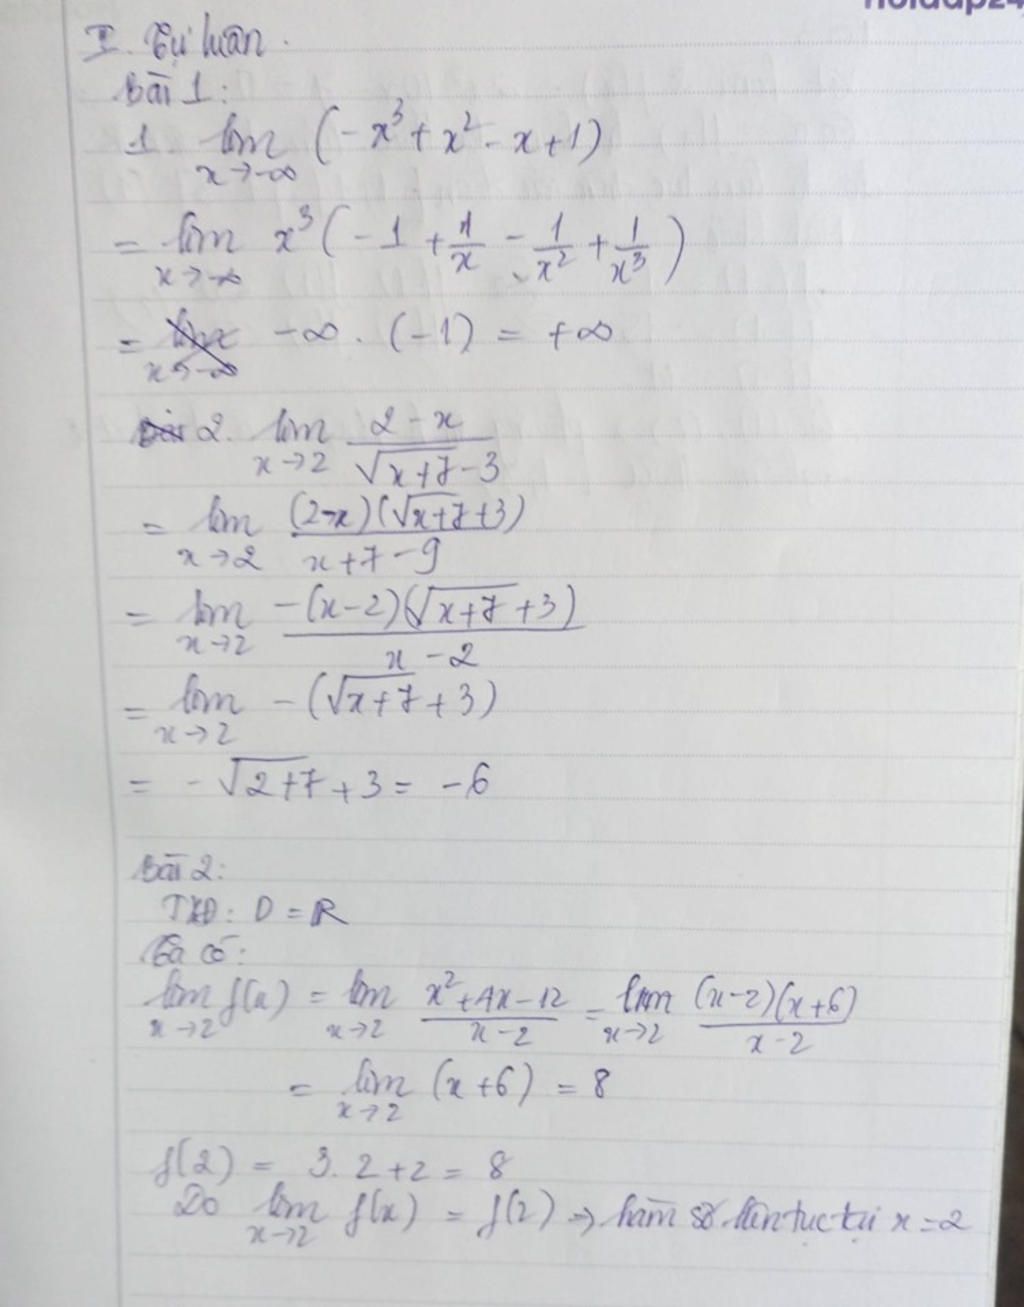 I. Tự luận.
Bài 1:
1. lim x→-∞ (-x³ + x² - x + 1)
= lim x→-∞ x³(-1 + 1/x - 1/x² + 1/x³)
= -∞ . (-1) = +∞
2. lim x→2 (2-x)/(√(x+7) - 3)
= lim x→2 (2-x)(√(x+7)+3)/(x+7-9)
= lim x→2 -(x-2)(√(x+7)+3)/(x-2)
= lim x→2 -(√(x+7)+3)
= -√(2+7)+3 = -6
Bài 2:
TXĐ: D = R
Ta có:
lim x→2 f(x) = lim x→2 (x²+4x-12)/(x-2) = lim x→2 (x-2)(x+6)/(x-2)
= lim x→2 (x+6) = 8
f(2) = 3.2+2 = 8
Do lim x→2 f(x) = f(2) → hàm số liên tục tại x=2